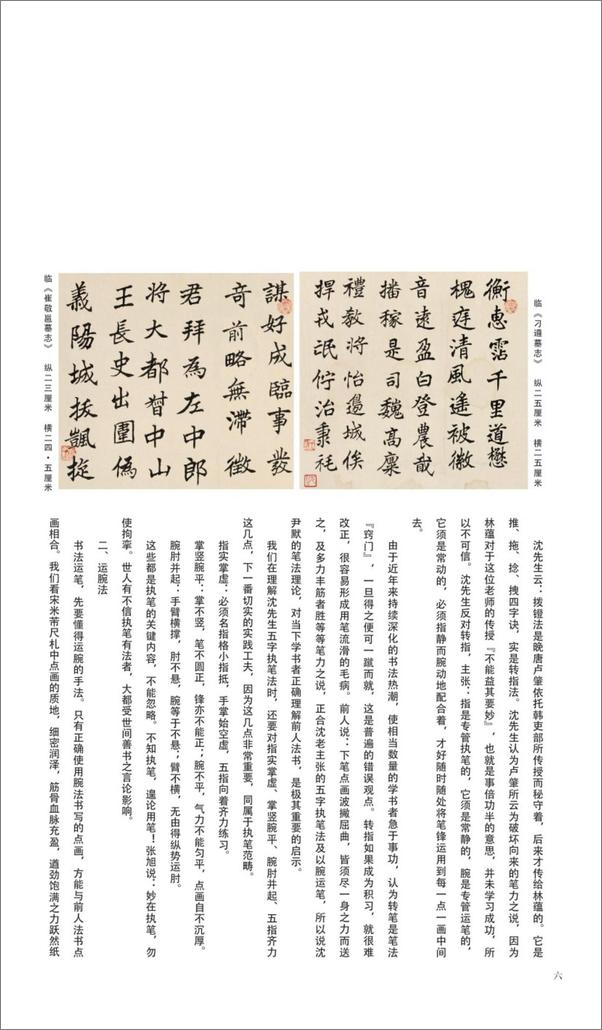 临《刁遵墓志》 纵二五厘米 横二五厘米
衡惠霑千里道懋
槐庭清風遙被徽
音遠盈白登農哉
播稼是司魏高廩
禮教將怡邊城俟
捍戎氓佇治秉秏
謀好成臨事發
奇前略無滯徵
君拜為左中郎
將大都督中山
王長史出圍偽
義陽城拔凱旋
临《崔敬邕墓志》 纵二三厘米 横二四·五厘米
沈先生云：拨镫法是晚唐卢肇依托韩吏部所传授而秘守着，后来才传给林蕴的。它是
推、拖、捻、拽四字诀，实是转指法。沈先生认为卢肇所云为破坏向来的笔力之说，因为
林蕴对于这位老师的传授『不能益其要妙』，也就是事倍功半的意思，并未学习成功，所
以不可信。沈先生反对转指，主张：指是专管执笔的，它须是常静的，腕是专管运笔的，
它须是常动的，必须指静而腕动地配合着，才好随时随处将笔锋运用到每一点一画中间
去。
由于近年来持续深化的书法热潮，使相当数量的学书者急于事功，认为转笔是笔法
『窍门』，一旦得之便可一蹴而就，这是普遍的错误观点。转指如果成为积习，就很难
改正，很容易形成用笔流滑的毛病。前人说：下笔点画波撇屈曲，皆须尽一身之力而送
之，及多力丰筋者胜等等笔力之说，正合沈老主张的五字执笔法及以腕运笔，所以说沈
尹默的笔法理论，对当下学书者正确理解前人法书，是极其重要的启示。
我们在理解沈先生五字执笔法时，还要对指实掌虚、掌竖腕平、腕肘并起、五指齐力
这几点，下一番切实的实践工夫，因为这几点非常重要，同属于执笔范畴。
指实掌虚：必须名指格小指抵，手掌始空虚，五指向着齐力练习。
掌竖腕平：掌不竖，笔不圆正，锋亦不能正；腕不平，气力不能匀平，点画自不沉厚。
腕肘并起：手臂横撑，肘不悬，腕等于不悬；臂不横，无由得纵势运肘。
这些都是执笔的关键内容，不能忽略。不知执笔，遑论用笔！张旭说：妙在执笔，勿
使拘挛。世人有不信执笔有法者，大都受世间善书之言论影响。
二、运腕法
书法运笔，先要懂得运腕的手法。只有正确使用腕法书写的点画，方能与前人法书点
画相合。我们看宋米芾尺札中点画的质地，细密润泽，筋骨血脉充盈，遒劲饱满之力跃然纸
六